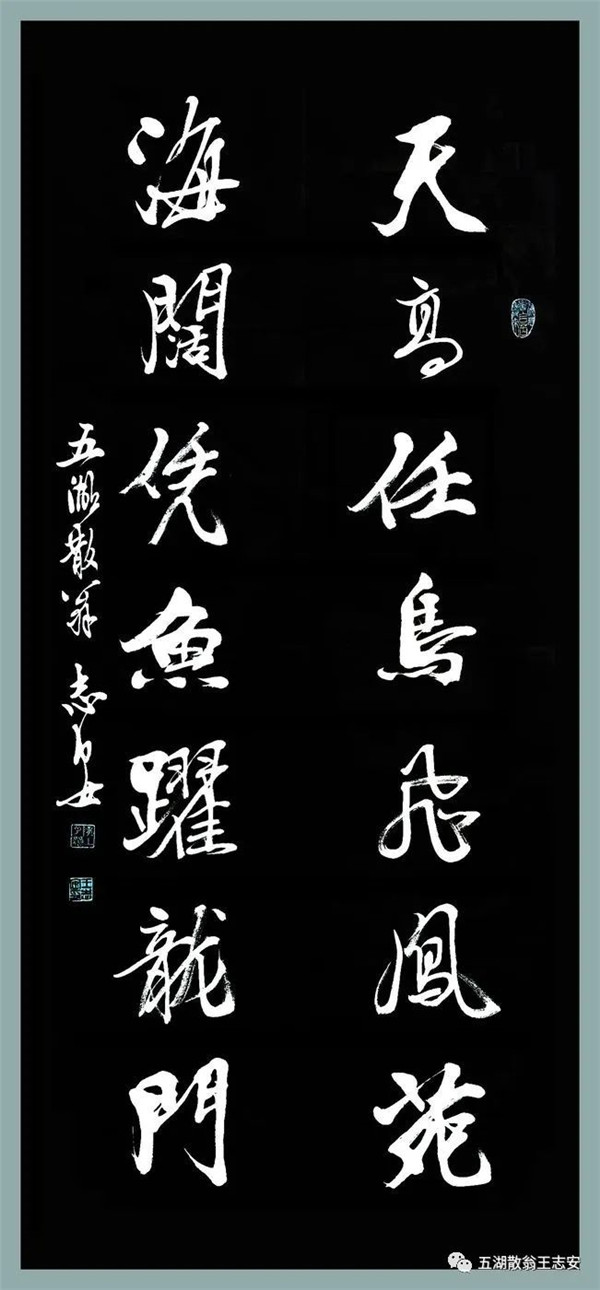 天高任鳥飛鳳苑
海闊凭魚躍龍門
五湖散翁 志安
五湖散翁王志安